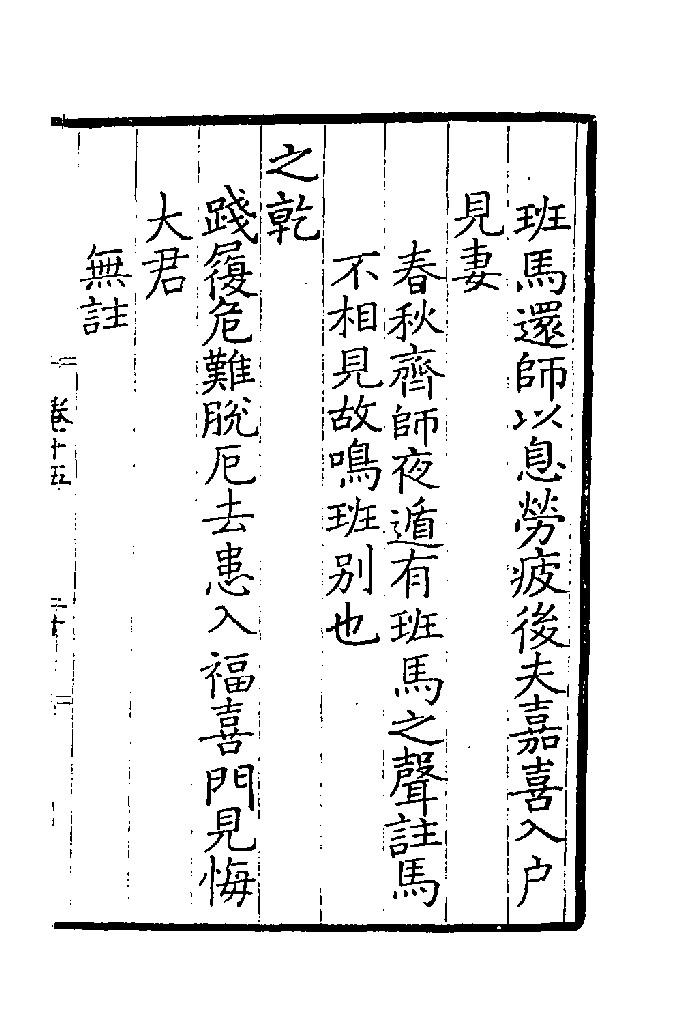 班馬還師以息勞疲後夫嘉喜入户
見妻
春秋齊師夜遁有班馬之聲註馬
不相見故鳴班别也
之乾
踐履危難脫厄去患入福喜門見悔
大君
無註
卷十五